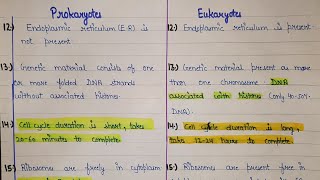 Prokaryotes
Eukaryotes
12.) Endoplasmic reticulum (E.R) is
not present
12.) Endoplasmic reticulum is present
13.) Genetic material consists of one
or more folded DNA strands
without associated histone.
13.) Genetic material present as more
than one chromosome DNA
associated with histones (only 40-50%
DNA).
14.) Cell cycle duration is short, takes
20-60 minutes to complete
14.) Cell cycle duration is long,
takes 12-24 hours to complete.
15.) Ribosomes are freely in cytoplasm
15.) Ribosomes are present free in